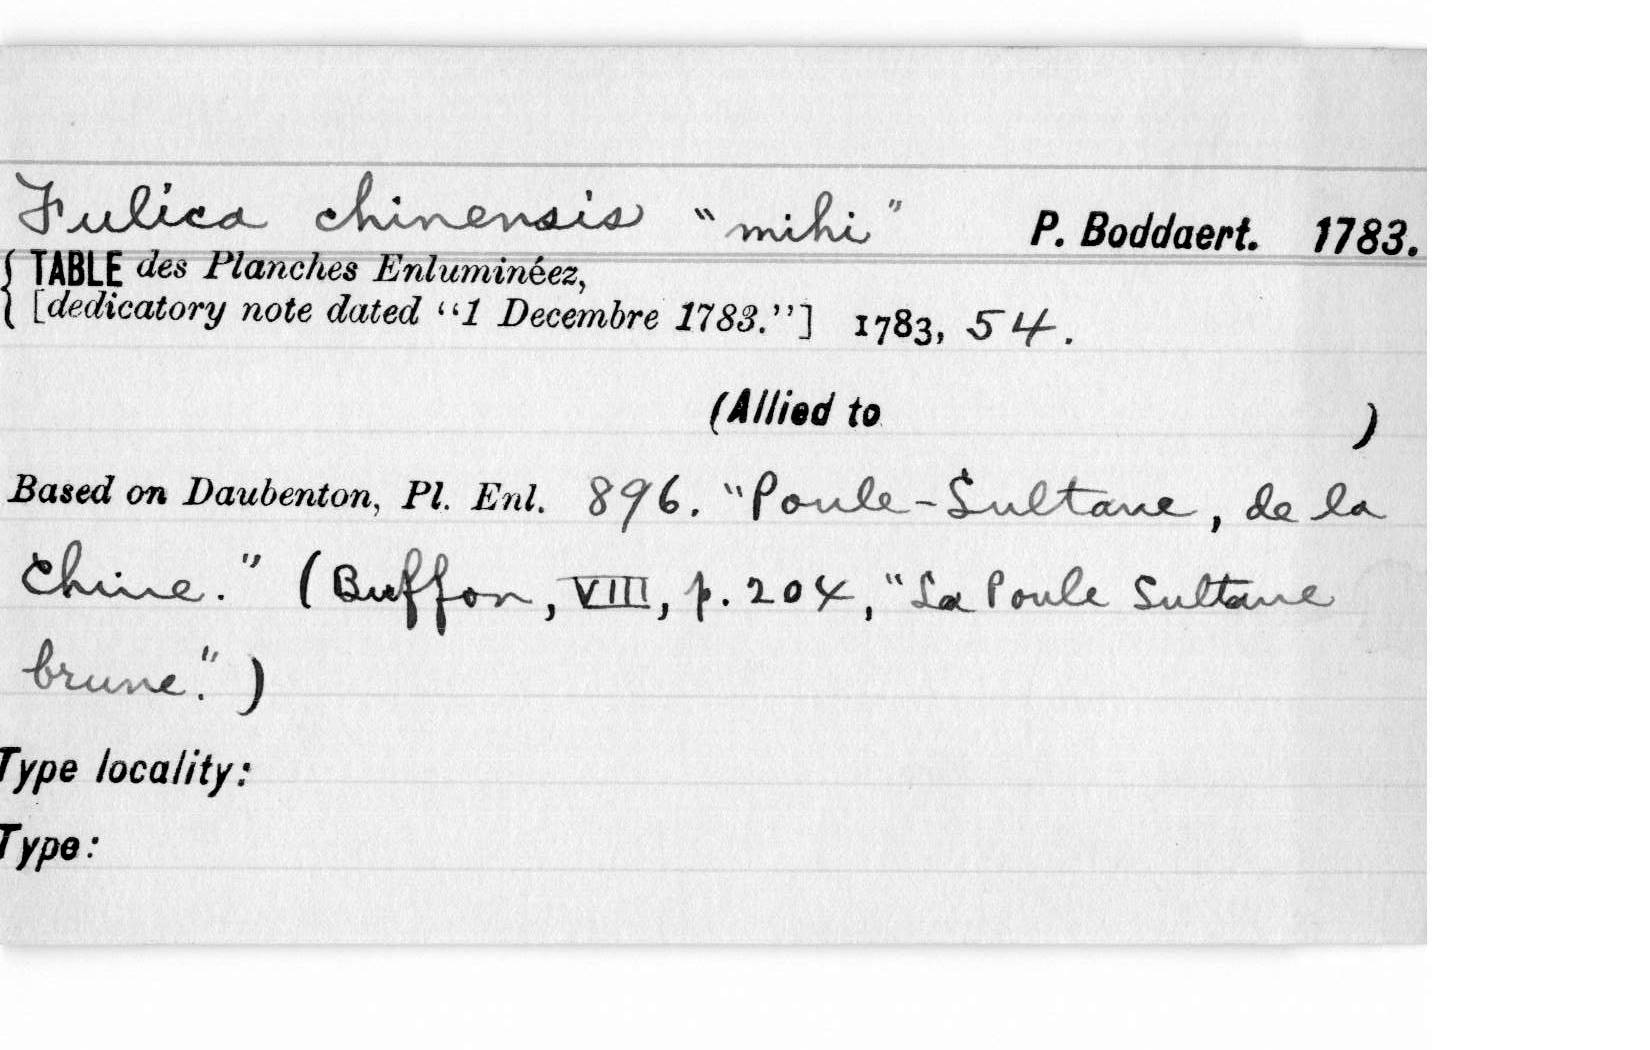 Fulica chinensis "mihi" P. Boddaert. 1783.
{ TABLE des Planches Enluminéez,
[dedicatory note dated "1 Decembre 1783."] 1783, 54.
(Allied to )
Based on Daubenton, Pl. Enl. 896. "Poule-Sultane, de la
Chine." (Buffon, VIII, p. 204, "La Poule Sultane
brune.")
Type locality:
Type: